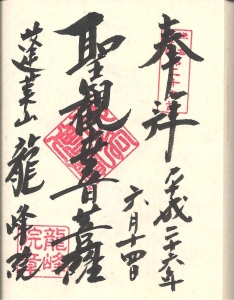 奉拝
平成二十六年
六月十四日
聖観世音菩薩
蓬莱山 龍峰院
龍峰
院章